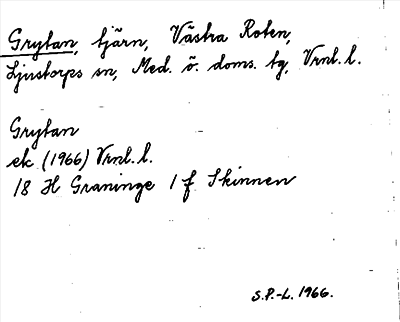 Grytan, tjärn, Västra Roten,
Ljustorps sn, Med. ö. doms. tg, Vrnl. l.
Grytan
ek (1966) Vrnl. l.
18 H Graninge 1 f Skinnen
S.P.-L. 1966.